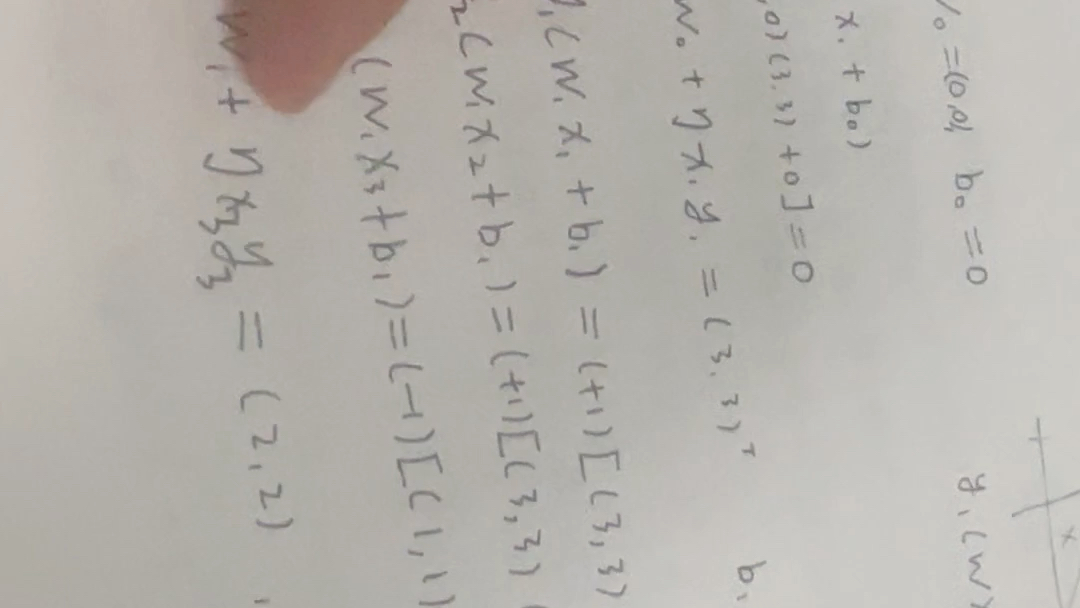 =(0,0) b₀ = 0
y₁(w
x₁ + b₀)
,0)(3,3) + 0] = 0
w₀ + η x₁ y₁ = (3,3)ᵀ b₁
(w₁ x₁ + b₁) = (+1)[(3,3)
₂(w₁ x₂ + b₁) = (+1)[(3,3)
(w₁ x₃ + b₁) = (-1)[(1,1)
w₁ + η x₃ y₃ = (2,2)